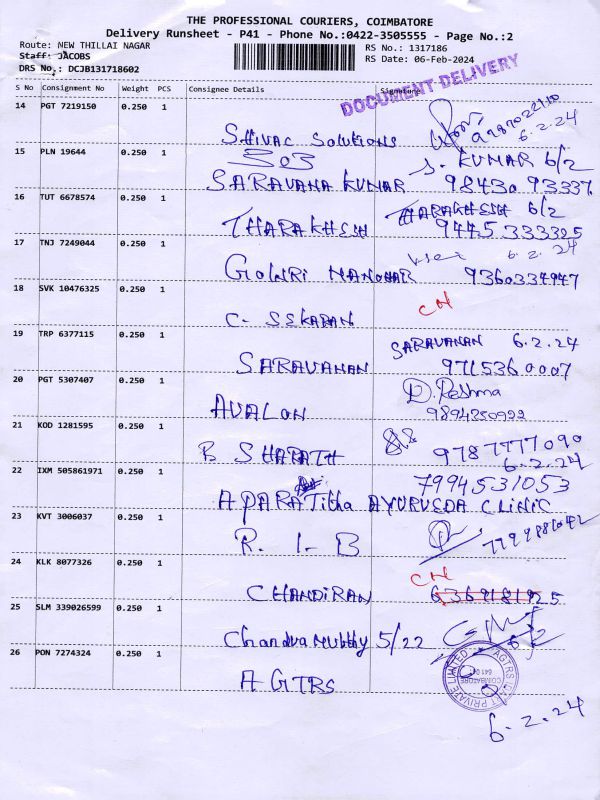 THE PROFESSIONAL COURIERS, COIMBATORE
Delivery Runsheet - P41 - Phone No.:0422-3505555 - Page No.:2
Route: NEW THILLAI NAGAR RS No.: 1317186
Staff: JACOBS RS Date: 06-Feb-2024
DRS No.: DCJB131718602
DOCUMENT DELIVERY
S No Consignment No Weight PCS Consignee Details Signature
14 PGT 7219150 0.250 1
SHIVAC Solutions 6.2.24
15 PLN 19644 0.250 1 303 S. KUMAR 6/2
SARAVANA KUMAR 98430 93337
16 TUT 6678574 0.250 1 THARAKHESH 6/2
THARAKHESH 9445333325
17 TNJ 7249044 0.250 1 6.2.24
GOWRI MANOHAR 9360334947
18 SVK 10476325 0.250 1 CN
C. SEKARAN
19 TRP 6377115 0.250 1 SARAVANAN 6.2.24
SARAVANAN 9715360007
20 PGT 5307407 0.250 1 D. Reshma
AVALON 9894350922
21 KOD 1281595 0.250 1
B SHARATH 9787777090
6.2.24
22 IXM 505861971 0.250 1 7994531053
APARATitha AYURVEDA CLINIC
23 KVT 3006037 0.250 1
R. I. B
24 KLK 8077326 0.250 1 CN
CHANDiRAN
25 SLM 339026599 0.250 1
Chandramurthy 5/22 6/2
26 PON 7274324 0.250 1
AGTRS
PRIVATE LIMITED
COIMBATORE
6.2.24